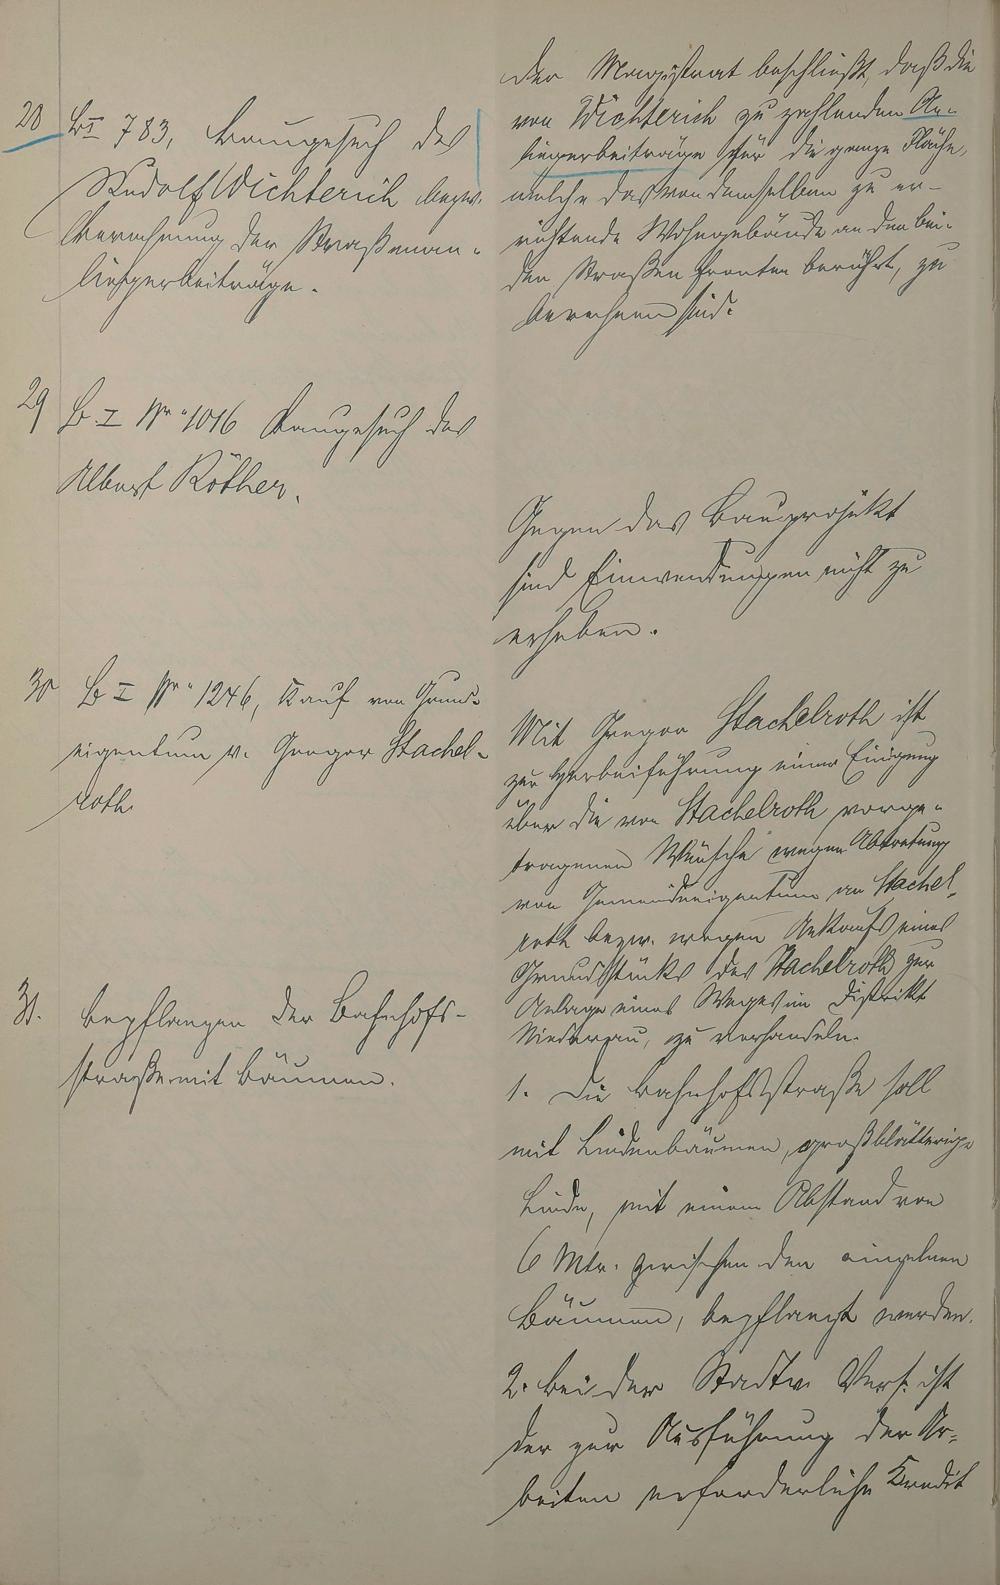 28
B I 783, Baugesuch des
Rudolf Wichterich bezw.
Berechnung der Straßenan-
liegerbeiträge.
Der Magistrat beschließt, daß die
von Wichterich zu zahlenden An-
liegerbeiträge für die ganze Fläche,
welche das von demselben zu er-
richtende Wohngebäude an den bei-
den Straßenfronten berührt, zu
berechnen sind.
29
B. I Nr. 1016 Baugesuch des
Albert Röther.
Gegen das Bauprojekt
sind Einwendungen nicht zu
erheben.
30
B I Nr. 1246, Kauf von Grund-
eigentum v. Gregor Stachel-
roth.
Mit Gregor Stachelroth ist
zur Herbeiführung einer Einigung
über die von Stachelroth vorge-
tragenen Wünsche wegen Abtretung
von Gemeindeeigentum an Stachel-
roth bezw. wegen Ankaufs eines
Grundstücks des Stachelroth zur
Anlage eines Weges im Distrikt
zu verhandeln.
31.
bepflanzen der Bahnhofs-
straße mit Bäumen.
1. Die Bahnhofsstraße soll
mit Lindenbäumen, großblätterige
Linde, mit einem Abstand von
6 Mtr. zwischen den einzelnen
Bäumen, bepflanzt werden.
2. bei der Stadtv. Vers. ist
der zur Ausführung der Ar-
beiten erforderliche Kredit